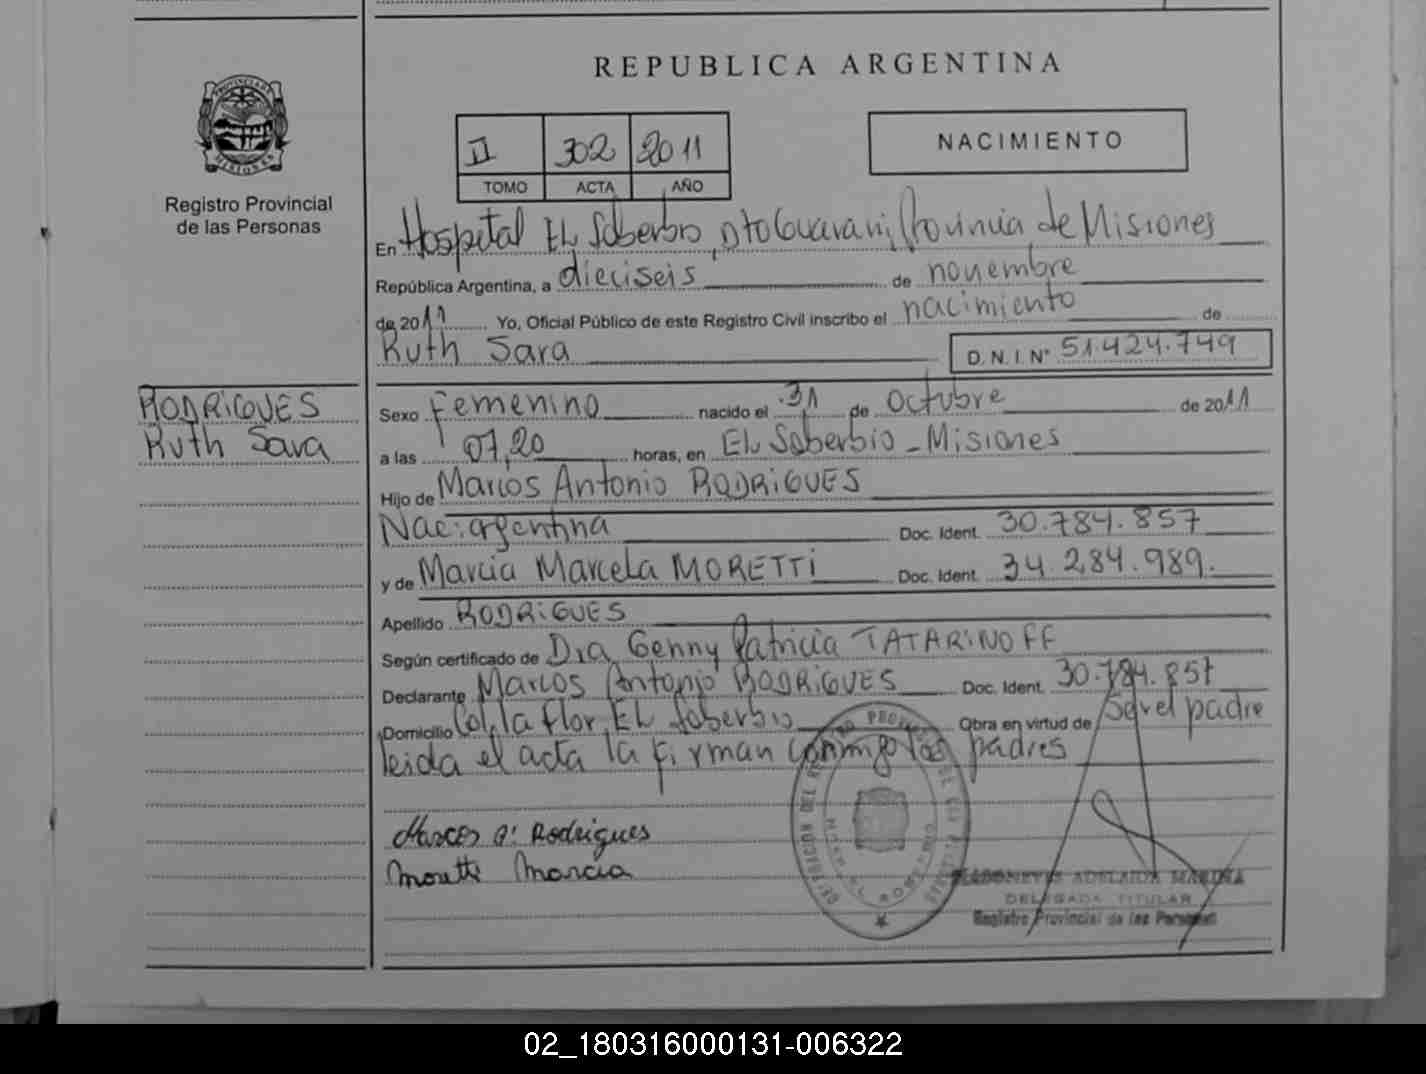 REPUBLICA ARGENTINA
PROVINCIA DE
MISIONES
Registro Provincial
de las Personas
II 302 2011
TOMO ACTA AÑO
NACIMIENTO
En Hospital EL Soberbio, Dto Guarani, Provincia de Misiones
República Argentina, a dieciseis de noviembre
de 2011 Yo, Oficial Público de este Registro Civil inscribo el nacimiento de
Ruth Sara D.N.I Nº 51.424.749
RODRIGUES
Ruth Sara
Sexo Femenino nacido el 31 de octubre de 2011
a las 07,20 horas, en EL Soberbio - Misiones
Hijo de Marcos Antonio RODRIGUES
Nac: argentina Doc. Ident. 30.784.857
y de Marcia Marcela MORETTI Doc. Ident. 34.284.989.
Apellido RODRIGUES
Según certificado de Dra Genny Patricia TATARINOFF
Declarante Marcos Antonio RODRIGUES Doc. Ident. 30.784.857
Domicilio Col. la flor, EL Soberbio Obra en virtud de Ser el padre
leida el acta la firman conmigo los padres
Marcos A: Rodrigues
Moretti Marcia
ADELAIDA MARINA
DELEGADA TITULAR
Registro Provincial de las Personas
02_180316000131-006322